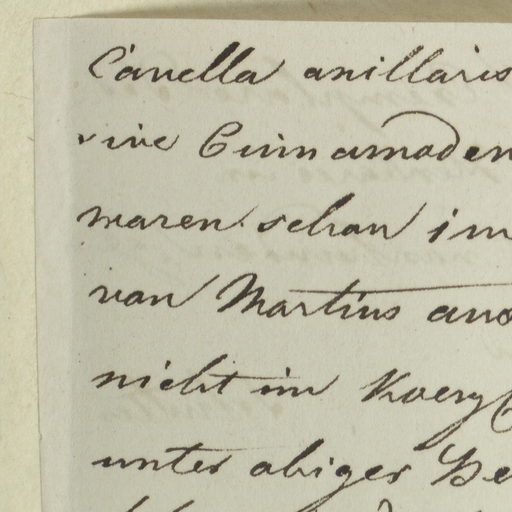 Canella axillaris
sive Cinnamoden
waren schon im
von Martius aus
nicht im Herb
unter obiger Be